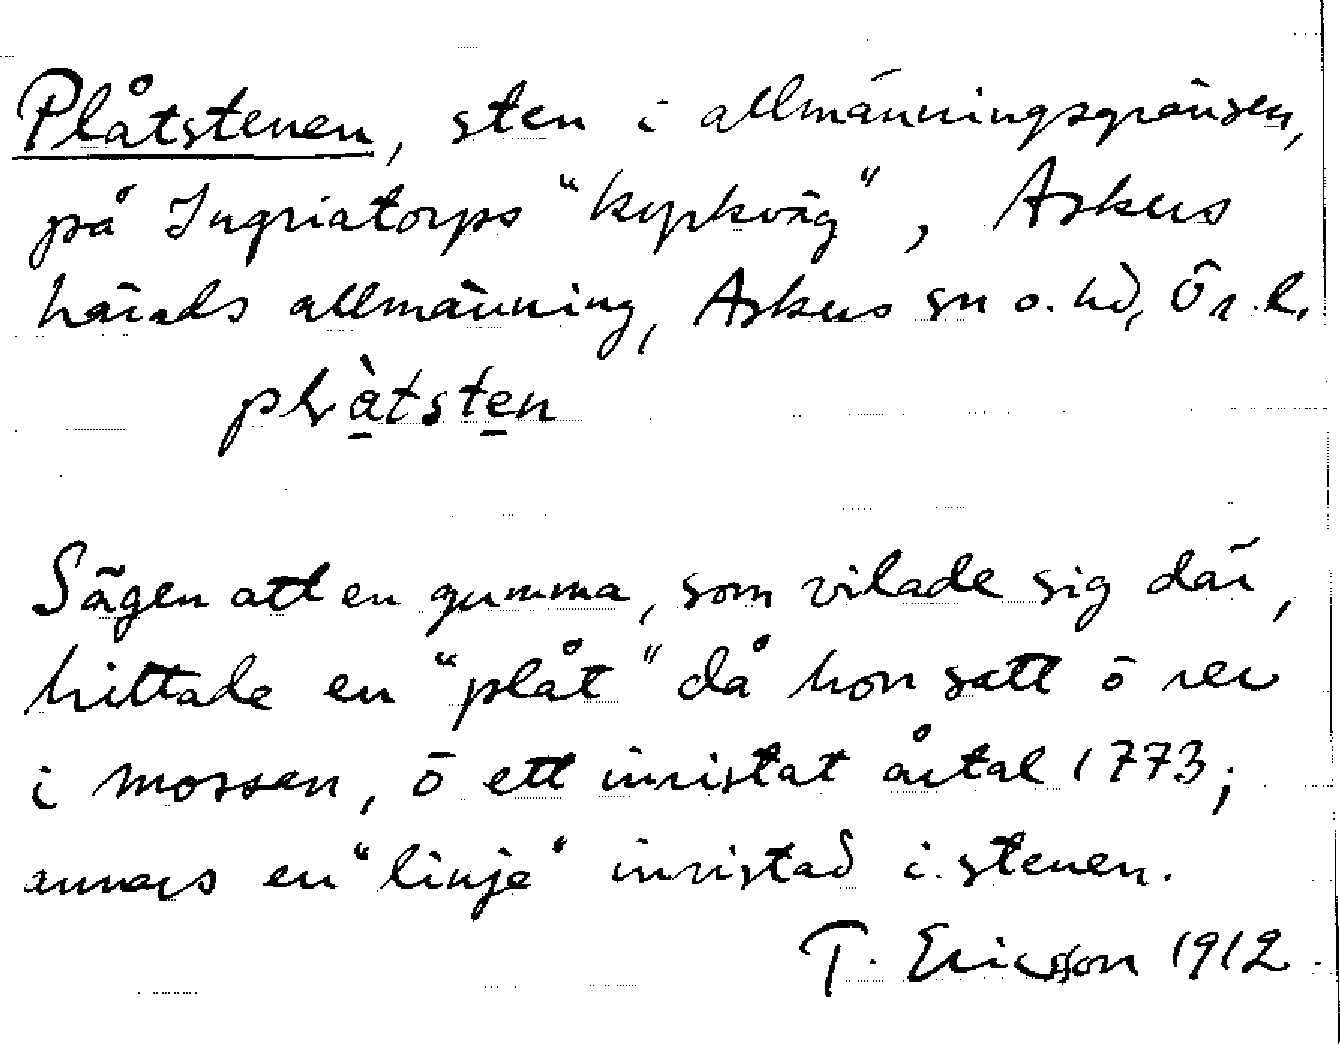 Plåtstenen, sten i allmänningsgränsen,
på Ingriatorps "kyrkväg", Askers
härads allmänning, Askers sn o. hd, Ör. l.
plàtsten
Sägen att en gumma, som vilade sig där,
hittade en "plåt" då hon satt ō rev
i mossen, ō ett inristat årtal 1773;
annars en "linje" inristad i stenen.
T. Ericsson 1912.